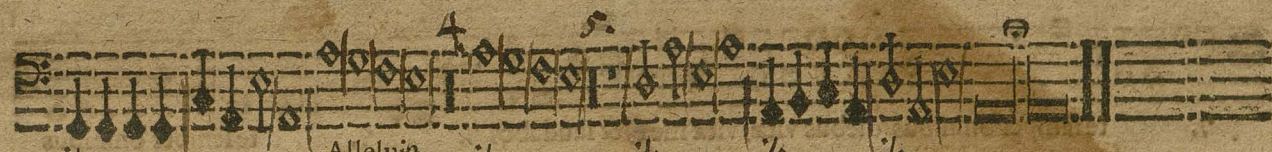 4. 5.
Alleluia